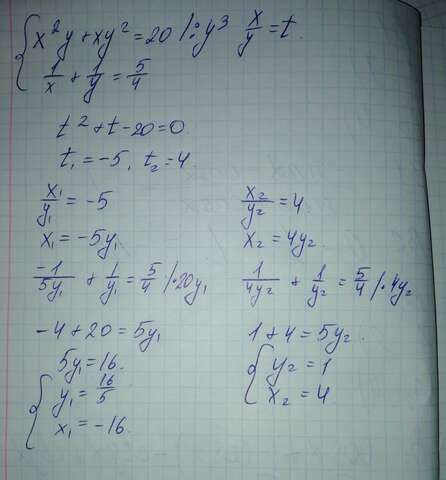 x²y + xy² = 20 |:y³ x/y = t.
1/x + 1/y = 5/4
t² + t - 20 = 0.
t₁ = -5, t₂ = 4.
x₁/y₁ = -5
x₁ = -5y₁
-1/5y₁ + 1/y₁ = 5/4 |·20y₁
-4 + 20 = 5y₁
5y₁ = 16.
y₁ = 16/5
x₁ = -16.
x₂/y₂ = 4.
x₂ = 4y₂
1/4y₂ + 1/y₂ = 5/4 |·4y₂
1 + 4 = 5y₂.
y₂ = 1
x₂ = 4.